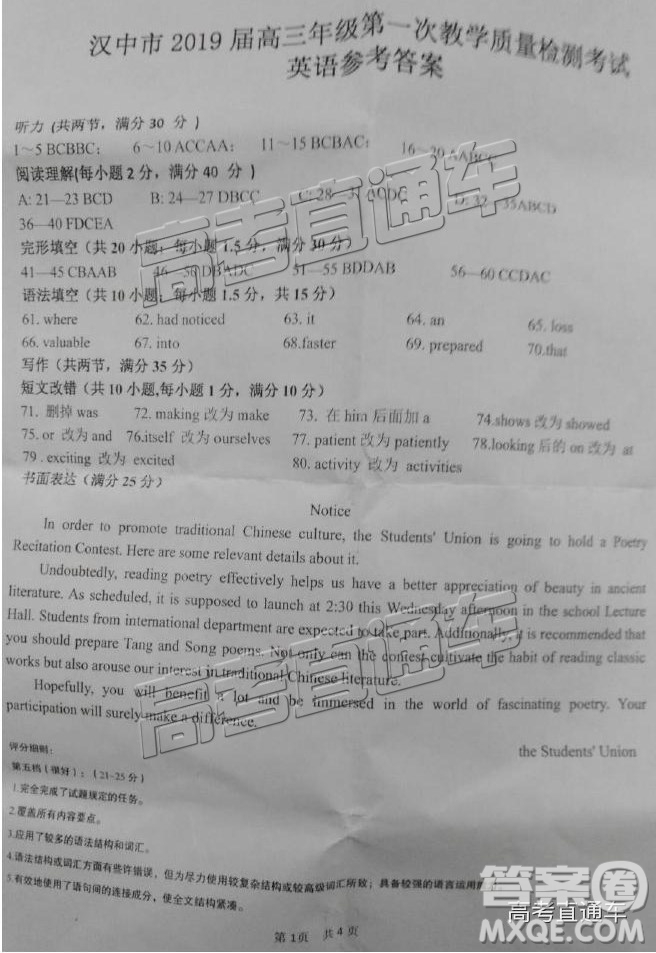 汉中市 2019 届高三年级第一次教学质量检测考试
英语参考答案
听力 (共两节，满分 30 分 )
1～5 BCBBC; 6～10 ACCAA; 11～15 BCBAC; 16～20 AABCC
阅读理解(每小题 2 分，满分 40 分 )
A: 21—23 BCD B: 24—27 DBCC C: 28—31 D: 32—35ABCD
36—40 FDCEA
完形填空（共 20 小题；每小题 1.5 分，满分 30 分）
41—45 CBAAB 46—50 DBADC 51—55 BDDAB 56—60 CCDAC
语法填空（共 10 小题；每小题 1.5 分，共 15 分）
61. where 62. had noticed 63. it 64. an 65. loss
66. valuable 67. into 68.faster 69. prepared 70.that
写作（共两节，满分 35 分）
短文改错（共 10 小题,每小题 1 分，满分 10 分）
71. 删掉 was 72. making 改为 make 73. 在 him 后面加 a 74.shows 改为 showed
75. or 改为 and 76.itself 改为 ourselves 77. patient 改为 patiently 78.looking 后的 on 改为 at
79 . exciting 改为 excited 80. activity 改为 activities
书面表达（满分 25 分）
Notice
In order to promote traditional Chinese culture, the Students' Union is going to hold a Poetry
Recitation Contest. Here are some relevant details about it.
Undoubtedly, reading poetry effectively helps us have a better appreciation of beauty in ancient
literature. As scheduled, it is supposed to launch at 2:30 this Wednesday afternoon in the school Lecture
Hall. Students from international department are expected to take part. Additionally, it is recommended that
you should prepare Tang and Song poems. Not only can the contest cultivate the habit of reading classic
works but also arouse our interest in traditional Chinese literature.
Hopefully, you will benefit a lot and be immersed in the world of fascinating poetry. Your
participation will surely make a difference.
the Students' Union
评分细则：
第五档（很好）：（21-25 分）
1.完全完成了试题规定的任务。
2.覆盖所有内容要点。
3.应用了较多的语法结构和词汇。
4.语法结构或词汇方面有些许错误，但为尽力使用较复杂结构或较高级词汇所致；具备较强的语言运用
5.有效地使用了语句间的连接成分，使全文结构紧凑。
第 1页 共 4 页
高考直通车
高考直通车
答案圈
高考直通车
MXQE.COM